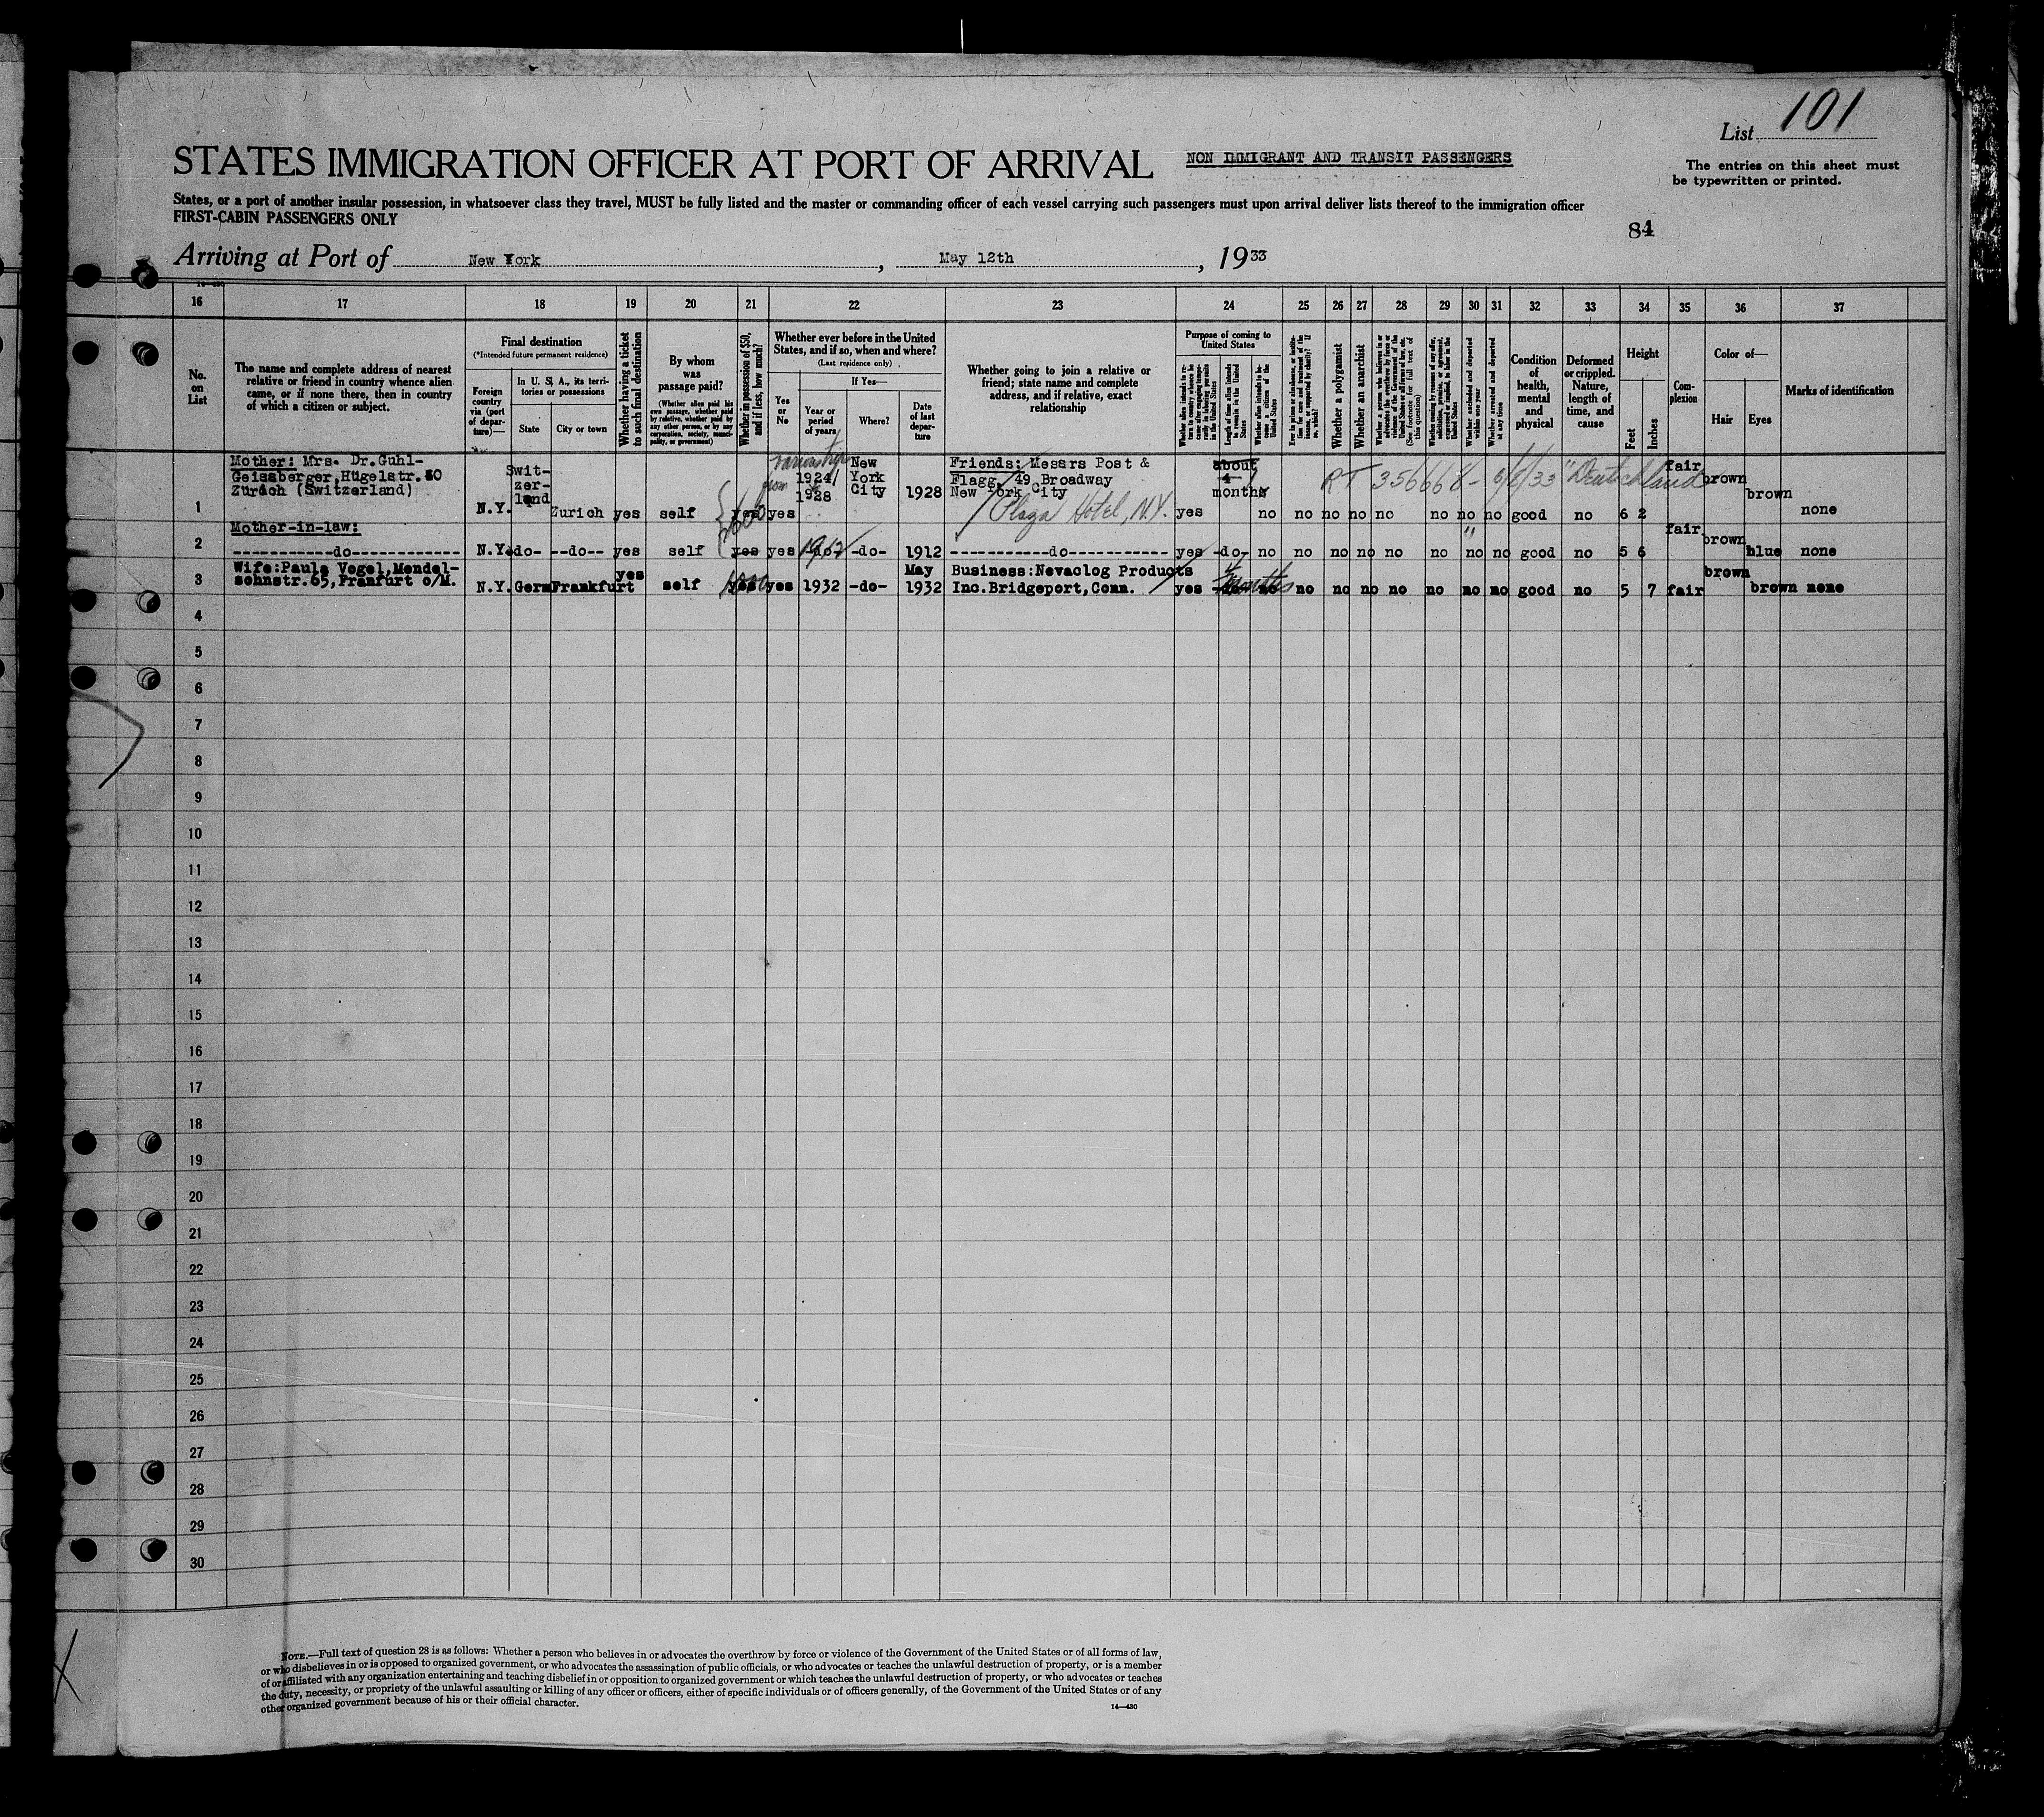 List 101
STATES IMMIGRATION OFFICER AT PORT OF ARRIVAL
NON IMMIGRANT AND TRANSIT PASSENGERS
The entries on this sheet must
be typewritten or printed.
States, or a port of another insular possession, in whatsoever class they travel, MUST be fully listed and the master or commanding officer of each vessel carrying such passengers must upon arrival deliver lists thereof to the immigration officer
FIRST-CABIN PASSENGERS ONLY
84
Arriving at Port of New York, May 12th, 1933
16 17 18 19 20 21 22 23 24 25 26 27 28 29 30 31 32 33 34 35 36 37
No.
on
List
The name and complete address of nearest
relative or friend in country whence alien
came, or if none there, then in country
of which a citizen or subject.
Final destination
(*Intended future permanent residence)
Foreign
country
via (port
of depar-
ture)—
In U. S. A., its terri-
tories or possessions
State
City or town
Whether having a ticket
to such final destination
By whom
was
passage paid?
(Whether alien paid his
own passage, whether paid
by relative, whether paid by
any other person, or by any
corporation, society, munici-
pality, or government)
Whether in possession of $50,
and if less, how much?
Whether ever before in the United
States, and if so, when and where?
(Last residence only)
Yes
or
No
If Yes—
Year or
period
of years
Where?
Date
of last
depar-
ture
Whether going to join a relative or
friend; state name and complete
address, and if relative, exact
relationship
Purpose of coming to
United States
Length of time alien intends
to remain in the United
States
Whether alien intends to be-
come a citizen of the
United States
Whether a polygamist
Whether an anarchist
(See footnote for full text of
this question)
Whether arrested and deported
at any time
Condition
of
health,
mental
and
physical
Deformed
or crippled.
Nature,
length of
time, and
cause
Height
Feet
Inches
Com-
plexion
Color of—
Hair
Eyes
Marks of identification
1
Mother: Mrs. Dr.Guhl-
Geissberger,Hügelstr.
Zürich (Switzerland)
N.Y.
Swit-
zer-
land
Zurich yes self yes yes
1924/
1928
New
York
City
1928
Friends: Messrs Post &
Flagg, 49 Broadway
New York City
Plaza Hotel, N.Y.
yes
about
4
months
no no no no no no no no good no 6 2 fair brown brown none
RT 356668 - 5/5/33 "Deutschland"
2
Mother-in-law:
-----------do------------ N.Y. do- --do-- yes self yes yes -do- -do- 1912 -----------do----------- yes -do- no no no no no no no no good no 5 6 fair brown blue none
3
Wife:Paula Vogel,Mendel-
sohnstr.65,Franfurt o/M.
N.Y. Germ Frankfurt yes self yes 1000 yes 1932 -do- May 1932
Business:Nevaclog Products
Inc.Bridgeport,Conn.
yes 4 months no no no no no no no no good no 5 7 fair brown brown none
4
5
6
7
8
9
10
11
12
13
14
15
16
17
18
19
20
21
22
23
24
25
26
27
28
29
30
NOTE.—Full text of question 28 is as follows: Whether a person who believes in or advocates the overthrow by force or violence of the Government of the United States or of all forms of law,
or who disbelieves in or is opposed to organized government, or who advocates the assassination of public officials, or who advocates or teaches the unlawful destruction of property, or is a member
of or affiliated with any organization entertaining and teaching disbelief in or opposition to organized government or which teaches the unlawful destruction of property, or who advocates or teaches
the duty, necessity, or propriety of the unlawful assaulting or killing of any officer or officers, either of specific individuals or of officers generally, of the Government of the United States or of any
other organized government because of his or their official character.
14—430